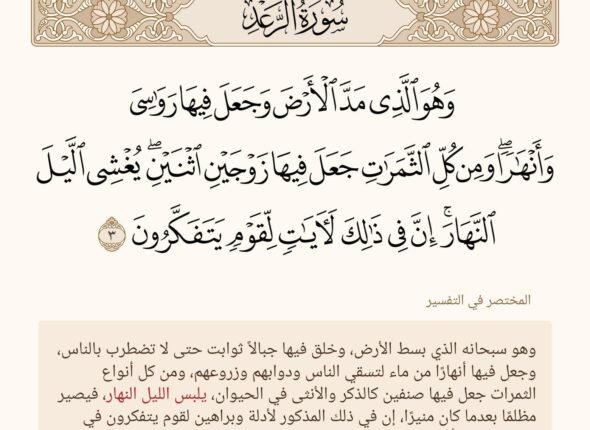 سُورَةُ الرَّعْدِ
وَهُوَ ٱلَّذِى مَدَّ ٱلْأَرْضَ وَجَعَلَ فِيهَا رَوَٰسِىَ
وَأَنْهَٰرًا ۖ وَمِن كُلِّ ٱلثَّمَرَٰتِ جَعَلَ فِيهَا زَوْجَيْنِ ٱثْنَيْنِ ۖ يُغْشِى ٱلَّيْلَ
ٱلنَّهَارَ ۚ إِنَّ فِى ذَٰلِكَ لَـَٔايَٰتٍ لِّقَوْمٍ يَتَفَكَّرُونَ ٣
المختصر في التفسير
وهو سبحانه الذي بسط الأرض، وخلق فيها جبالاً ثوابت حتى لا تضطرب بالناس،
وجعل فيها أنهارًا من ماء لتسقي الناس ودوابهم وزروعهم، ومن كل أنواع
الثمرات جعل فيها صنفين كالذكر والأنثى في الحيوان، يلبس الليل النهار، فيصير
مظلمًا بعدما كان منيرًا، إن في ذلك المذكور لأدلة وبراهين لقوم يتفكرون في